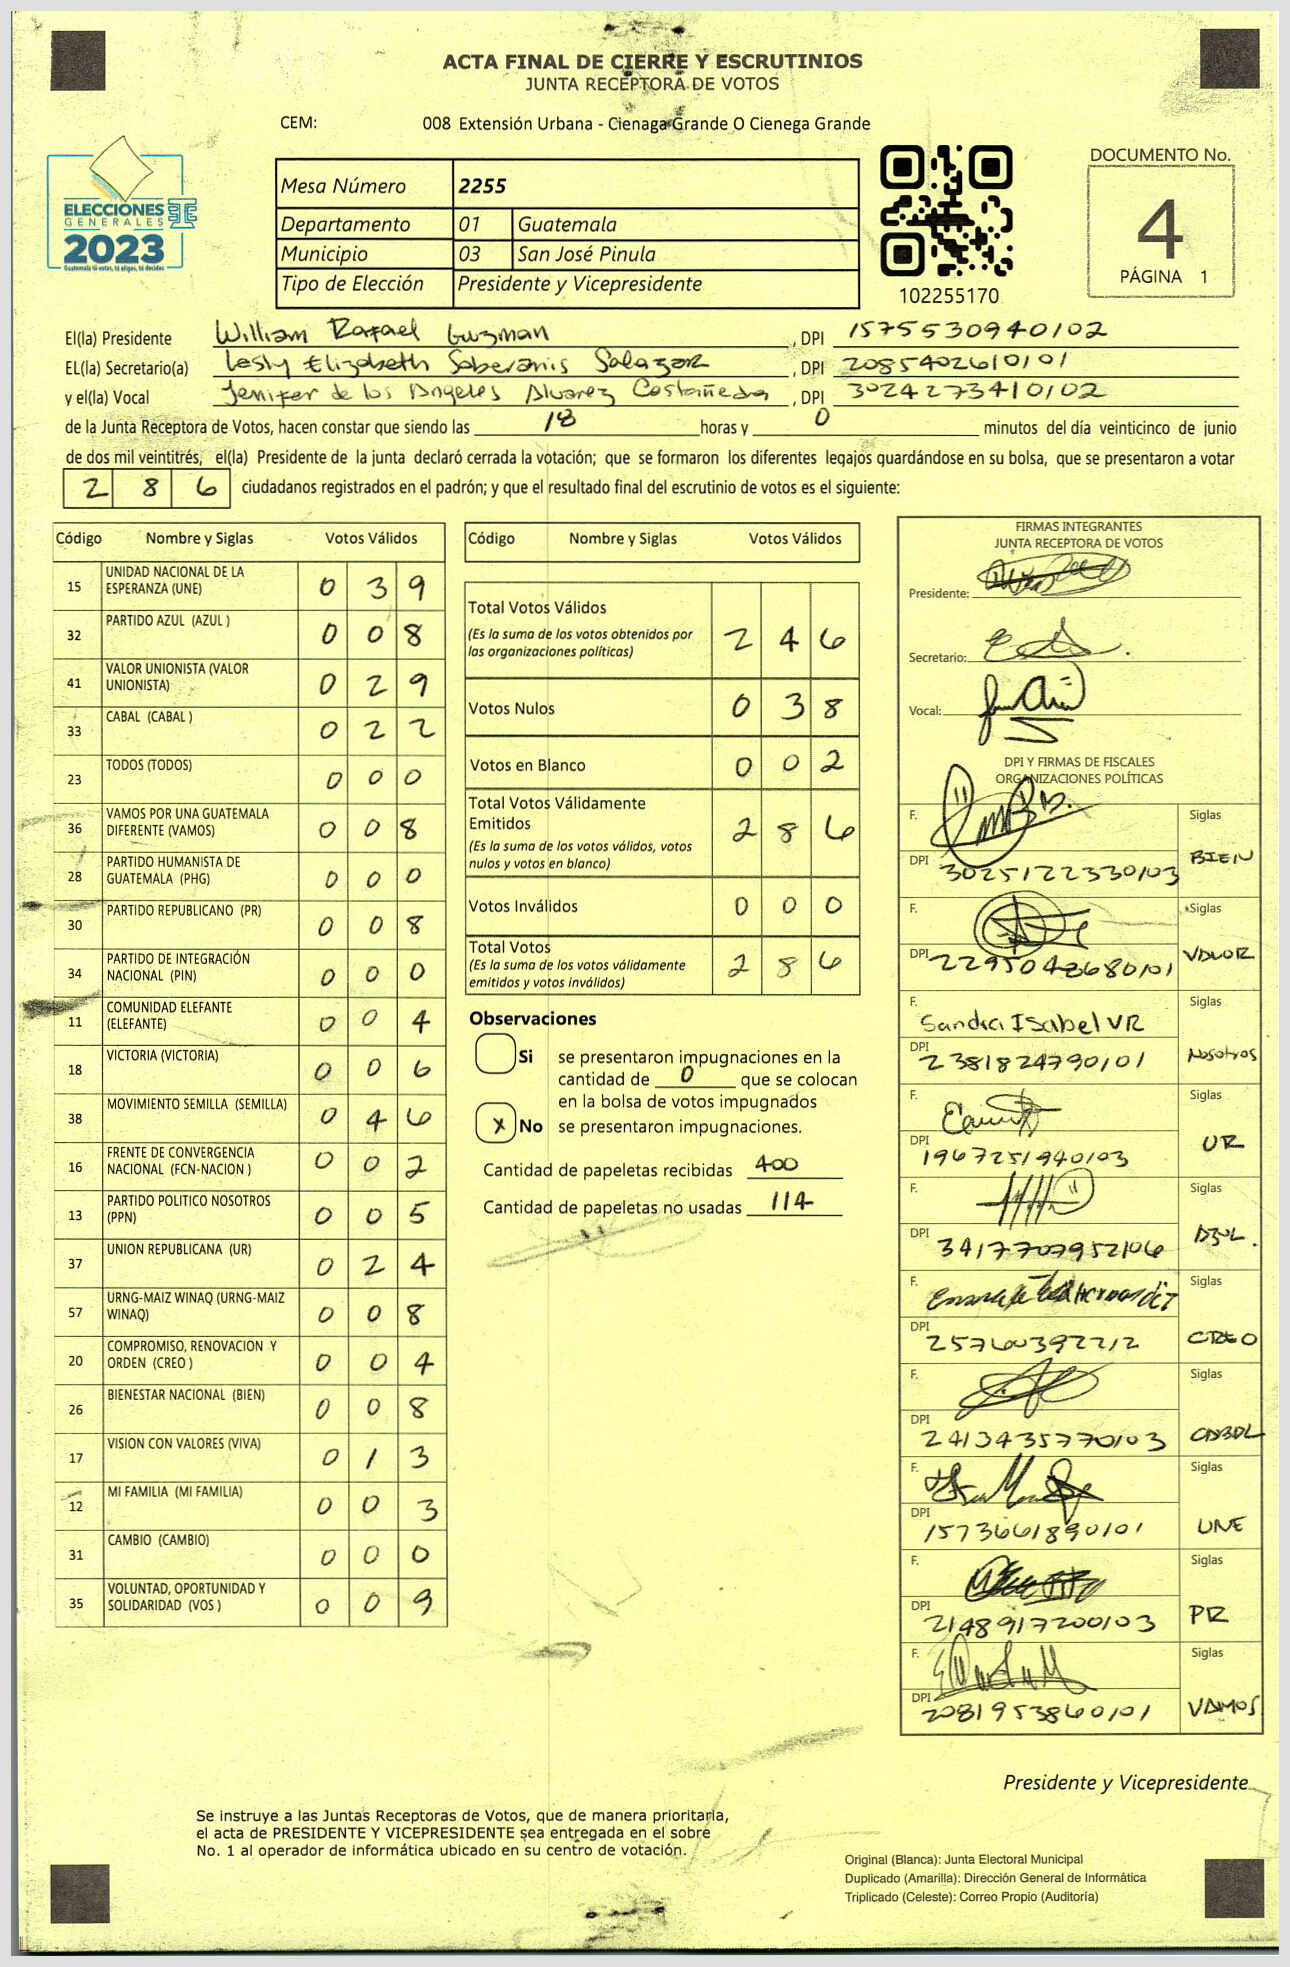 ACTA FINAL DE CIERRE Y ESCRUTINIOS
JUNTA RECEPTORA DE VOTOS
CEM: 008 Extensión Urbana - Cienaga Grande O Cienega Grande
ELECCIONES
GENERALES
2023
Guatemala tú votas, tú eliges, tú decides
Mesa Número 2255
Departamento 01 Guatemala
Municipio 03 San José Pinula
Tipo de Elección Presidente y Vicepresidente
102255170
DOCUMENTO No.
4
PÁGINA 1
El(la) Presidente William Rafael Guzman, DPI 1575530940102
EL(la) Secretario(a) Lesly Elizabeth Soberanis Salazar, DPI 2085402610101
y el(la) Vocal Jenifer de los Angeles Alvarez Castañeda, DPI 3024273410102
de la Junta Receptora de Votos, hacen constar que siendo las 18 horas y 0 minutos del día veinticinco de junio
de dos mil veintitrés, el(la) Presidente de la junta declaró cerrada la votación; que se formaron los diferentes legajos guardándose en su bolsa, que se presentaron a votar
2 8 6 ciudadanos registrados en el padrón; y que el resultado final del escrutinio de votos es el siguiente:
Código Nombre y Siglas Votos Válidos
15 UNIDAD NACIONAL DE LA ESPERANZA (UNE) 0 3 9
32 PARTIDO AZUL (AZUL ) 0 0 8
41 VALOR UNIONISTA (VALOR UNIONISTA) 0 2 9
33 CABAL (CABAL ) 0 2 2
23 TODOS (TODOS) 0 0 0
36 VAMOS POR UNA GUATEMALA DIFERENTE (VAMOS) 0 0 8
28 PARTIDO HUMANISTA DE GUATEMALA (PHG) 0 0 0
30 PARTIDO REPUBLICANO (PR) 0 0 8
34 PARTIDO DE INTEGRACIÓN NACIONAL (PIN) 0 0 0
11 COMUNIDAD ELEFANTE (ELEFANTE) 0 0 4
18 VICTORIA (VICTORIA) 0 0 6
38 MOVIMIENTO SEMILLA (SEMILLA) 0 4 6
16 FRENTE DE CONVERGENCIA NACIONAL (FCN-NACION ) 0 0 2
13 PARTIDO POLITICO NOSOTROS (PPN) 0 0 5
37 UNION REPUBLICANA (UR) 0 2 4
57 URNG-MAIZ WINAQ (URNG-MAIZ WINAQ) 0 0 8
20 COMPROMISO, RENOVACION Y ORDEN (CREO ) 0 0 4
26 BIENESTAR NACIONAL (BIEN) 0 0 8
17 VISION CON VALORES (VIVA) 0 1 3
12 MI FAMILIA (MI FAMILIA) 0 0 3
31 CAMBIO (CAMBIO) 0 0 0
35 VOLUNTAD, OPORTUNIDAD Y SOLIDARIDAD (VOS ) 0 0 9
Código Nombre y Siglas Votos Válidos
Total Votos Válidos 2 4 6
(Es la suma de los votos obtenidos por
las organizaciones políticas)
Votos Nulos 0 3 8
Votos en Blanco 0 0 2
Total Votos Válidamente
Emitidos 2 8 6
(Es la suma de los votos válidos, votos
nulos y votos en blanco)
Votos Inválidos 0 0 0
Total Votos 2 8 6
(Es la suma de los votos válidamente
emitidos y votos inválidos)
Observaciones
Si se presentaron impugnaciones en la
cantidad de 0 que se colocan
en la bolsa de votos impugnados
x No se presentaron impugnaciones.
Cantidad de papeletas recibidas 400
Cantidad de papeletas no usadas 114
FIRMAS INTEGRANTES
JUNTA RECEPTORA DE VOTOS
Presidente:
Secretario:
Vocal:
DPI Y FIRMAS DE FISCALES
ORGANIZACIONES POLÍTICAS
F. Siglas
DPI 3025122330103 BIEN
F. Siglas
DPI 2295042680101 VALOR
F. Sandra Isabel VR Siglas
DPI 2381824790101 Nosotros
F. Siglas
DPI 1967251940103 UR
F. Siglas
DPI 3417707952106 AZUL.
F. Siglas
DPI 257600392212 CREO
F. Siglas
DPI 2413435770103 CABAL
F. Siglas
DPI 1573661890101 UNE
F. Siglas
DPI 2148917200103 PR
F. Siglas
DPI 2081953860101 VAMOS
Presidente y Vicepresidente
Se instruye a las Juntas Receptoras de Votos, que de manera prioritaria,
el acta de PRESIDENTE Y VICEPRESIDENTE sea entregada en el sobre
No. 1 al operador de informática ubicado en su centro de votación.
Original (Blanca): Junta Electoral Municipal
Duplicado (Amarilla): Dirección General de Informática
Triplicado (Celeste): Correo Propio (Auditoría)